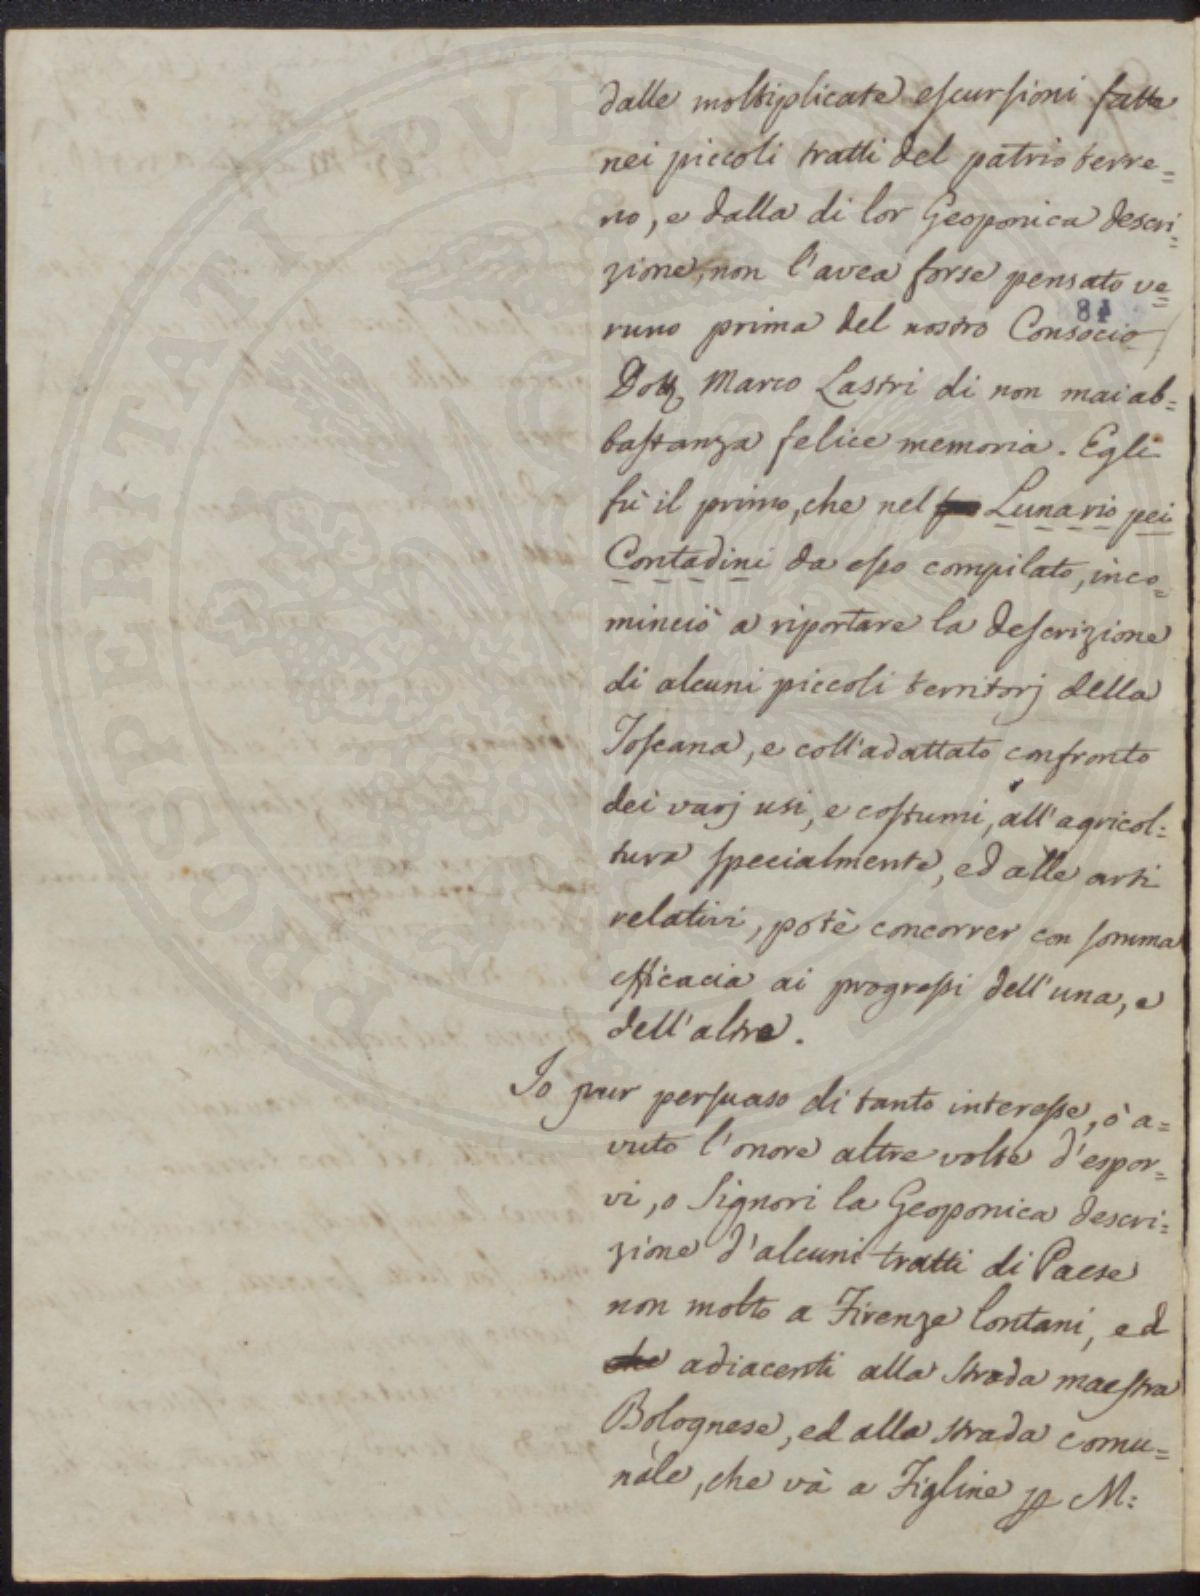 dalle moltiplicate escursioni fatte
nei piccoli tratti del patrio terre=
no, e dalla di lor Geoponica descri=
zione, non l'avea forse pensato ve=
84
runo prima del nostro Consocio
Dott. Marco Lastri di non mai ab=
bastanza felice memoria. Egli
fù il primo, che nel Lunario pei
Contadini da esso compilato, inco=
minciò a riportare la descrizione
di alcuni piccoli territorj della
Toscana, e coll'adattato confronto
dei varj usi, e costumi, all'agricol=
tura specialmente, ed alle arti
relativi, potè concorrer con somma
efficacia ai progressi dell'una, e
dell'altre.
Io pur persuaso di tanto interesse, ò a=
vuto l'onore altre volte d'espor=
vi, o Signori la Geoponica descri=
zione d'alcuni tratti di Paese
non molto a Firenze lontani, ed
che adiacenti alla strada maestra
Bolognese, ed alla strada comu=
nale, che và a Figline p M:
PROSPERITATI PUBLICAE